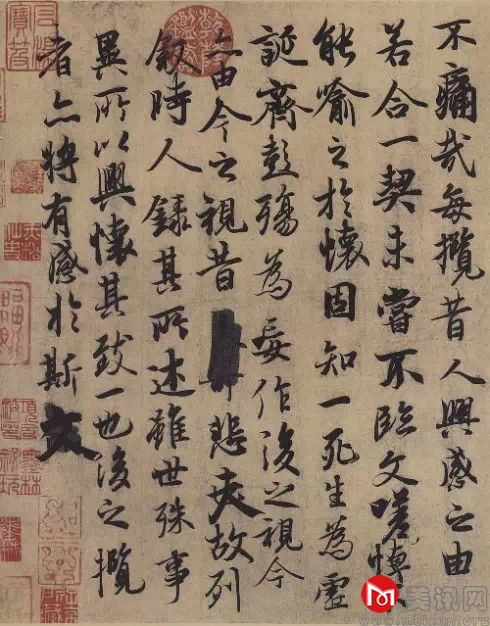 不痛哉每攬昔人興感之由
若合一契未嘗不臨文嗟悼不
能喻之於懷固知一死生為虛
誕齊彭殤為妄作後之視今
亦由今之視昔悲夫故列
叙時人錄其所述雖世殊事
異所以興懷其致一也後之攬
者亦將有感於斯文
美讯网